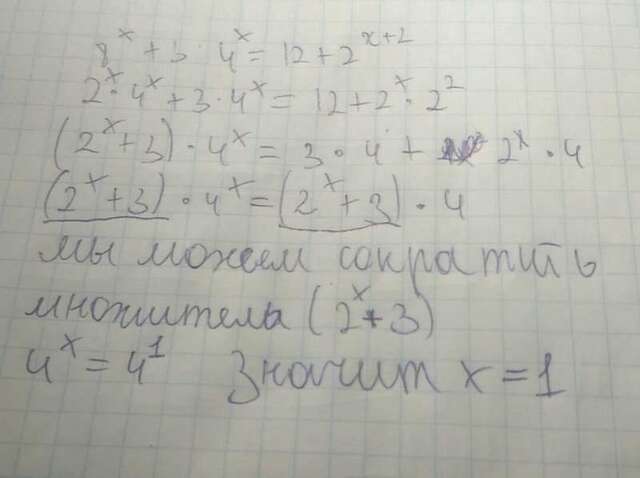 8^x + 3 · 4^x = 12 + 2^(x+2)
2^x · 4^x + 3 · 4^x = 12 + 2^x · 2^2
(2^x + 3) · 4^x = 3 · 4 + 2^x · 4
(2^x + 3) · 4^x = (2^x + 3) · 4
мы можем сократить
множитель (2^x + 3)
4^x = 4^1 Значит x = 1